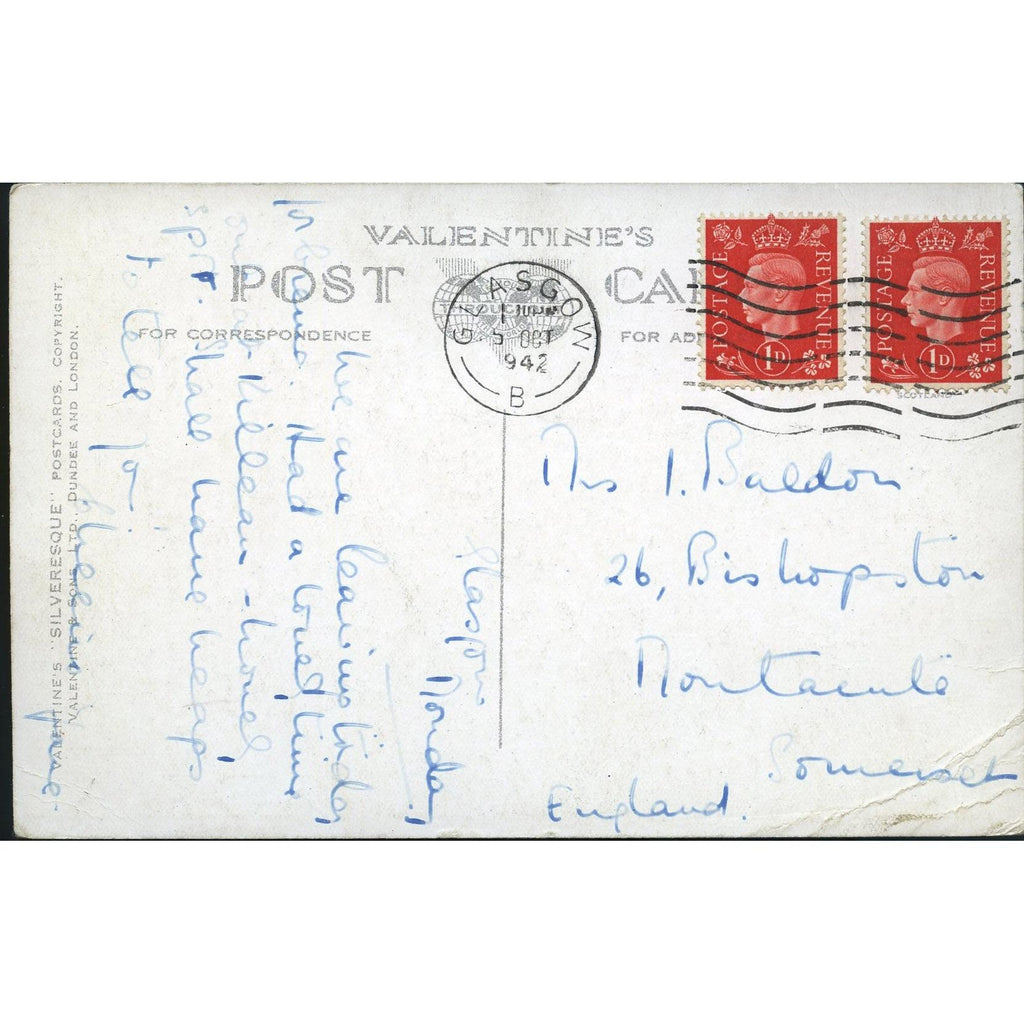 VALENTINE'S
POST CAR
FOR CORRESPONDENCE
FOR ADD
GLASGOW
5 OCT
1942
B
POSTAGE REVENUE
1D
POSTAGE REVENUE
1D
SCOTLAND
Mrs I. Baldon
26, Bishopston
Montacute
Somerset
England.
Glasgow
Monday
We are leaving today
for home. Had a lovely time
at Killean - hotel
spot. Shall have heaps
to tell you.
VALENTINE'S "SILVERESQUE" POSTCARDS. COPYRIGHT.
VALENTINE & SONS, LTD., DUNDEE AND LONDON.